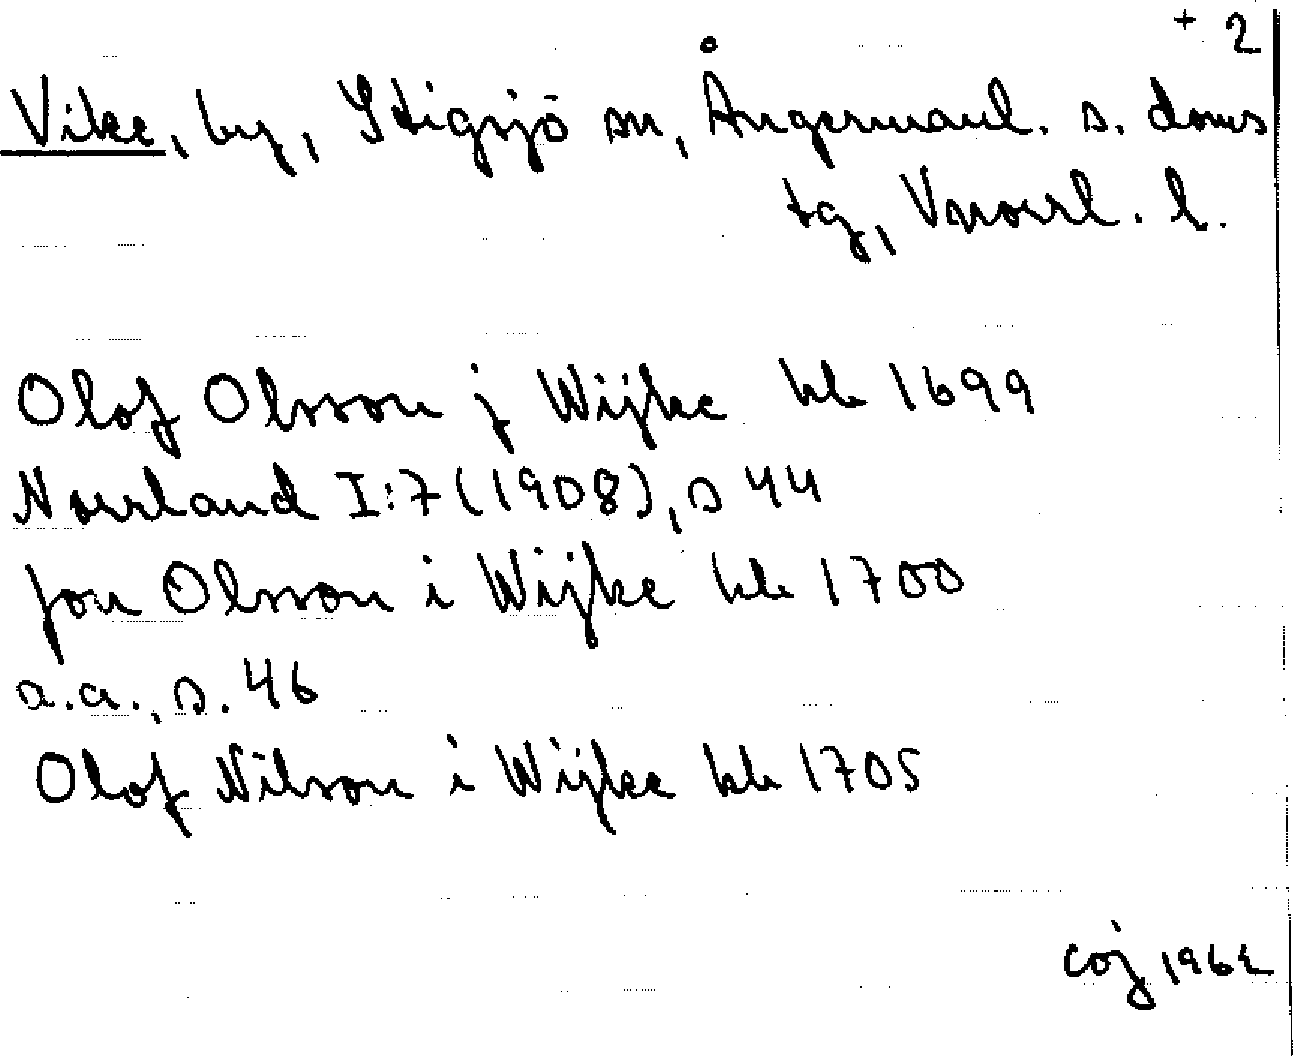 + 2
Vike, by, Stigsjö sn, Ångermanl. s. doms
tg, Vnorrl. l.
Olof Olsson j Wijke kb 1699
Norrland I:7 (1908), s 44
Jon Olsson i Wijke kb 1700
a.a., s. 46
Olof Nilson i Wijke kb 1705
coj 1962